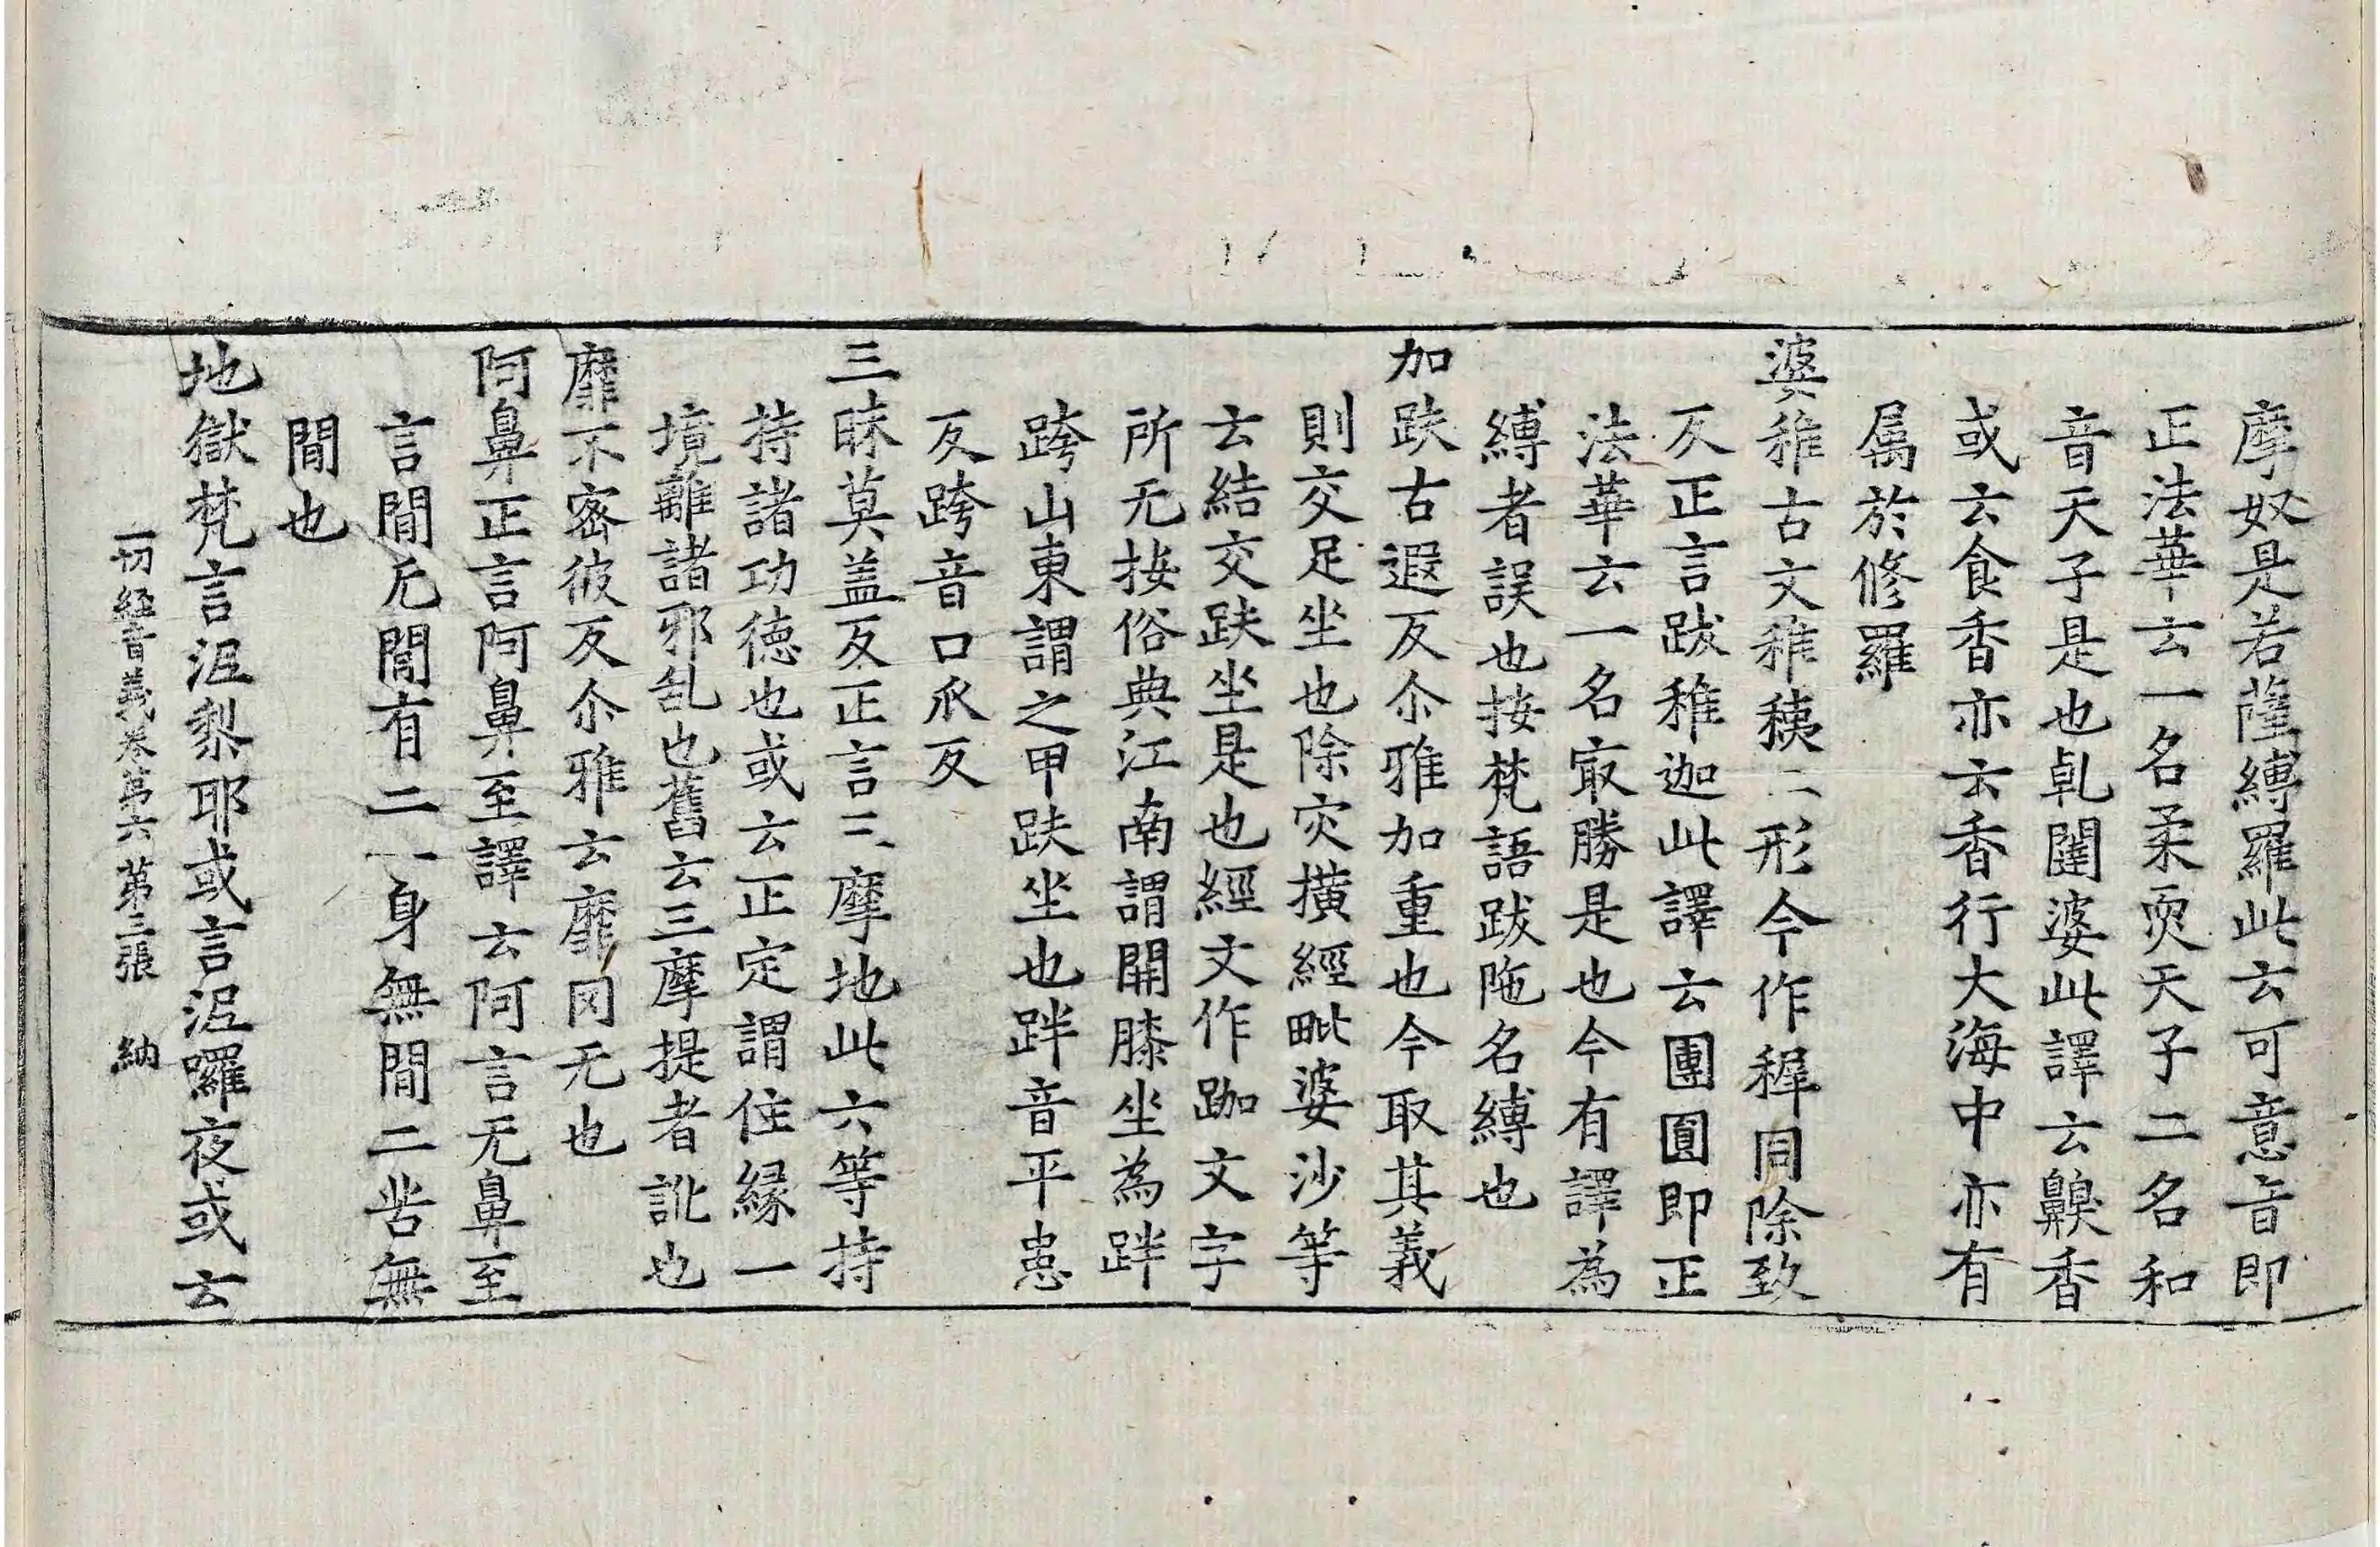 摩奴是若薩縛羅此云可意音即
正法華云一名柔耎天子二名和
音天子是也乹闥婆此譯云齅香
或云食香亦云香行大海中亦有
属於修羅
婆稚古文稚稺二形今作稺同除致
反正言跋稚迦此譯云團圓即正
法華云一名冣勝是也今有譯為
縛者誤也按梵語跋陁名縛也
加趺古遐反尒雅加重也今取其義
則交足坐也除灾横經毗婆沙等
云結交趺坐是也經文作跏文字
所无按俗典江南謂開膝坐為跘
跨山東謂之甲趺坐也跘音平患
反跨音口瓜反
三昧莫盖反正言三摩地此云等持
持諸功徳也或云正定謂住縁一
境離諸邪乱也舊云三摩提者訛也
靡不宻彼反尒雅云靡冈无也
阿鼻正言阿鼻至譯云阿言无鼻至
言間无間有二一身無間二苦無
間也
地獄梵言泥黎耶或言泥囉夜或云
一切經音義卷第六 第三張 納